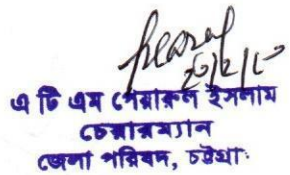 এ টি এম পেয়ারুল ইসলাম
চেয়ারম্যান
জেলা পরিষদ, চট্টগ্রা